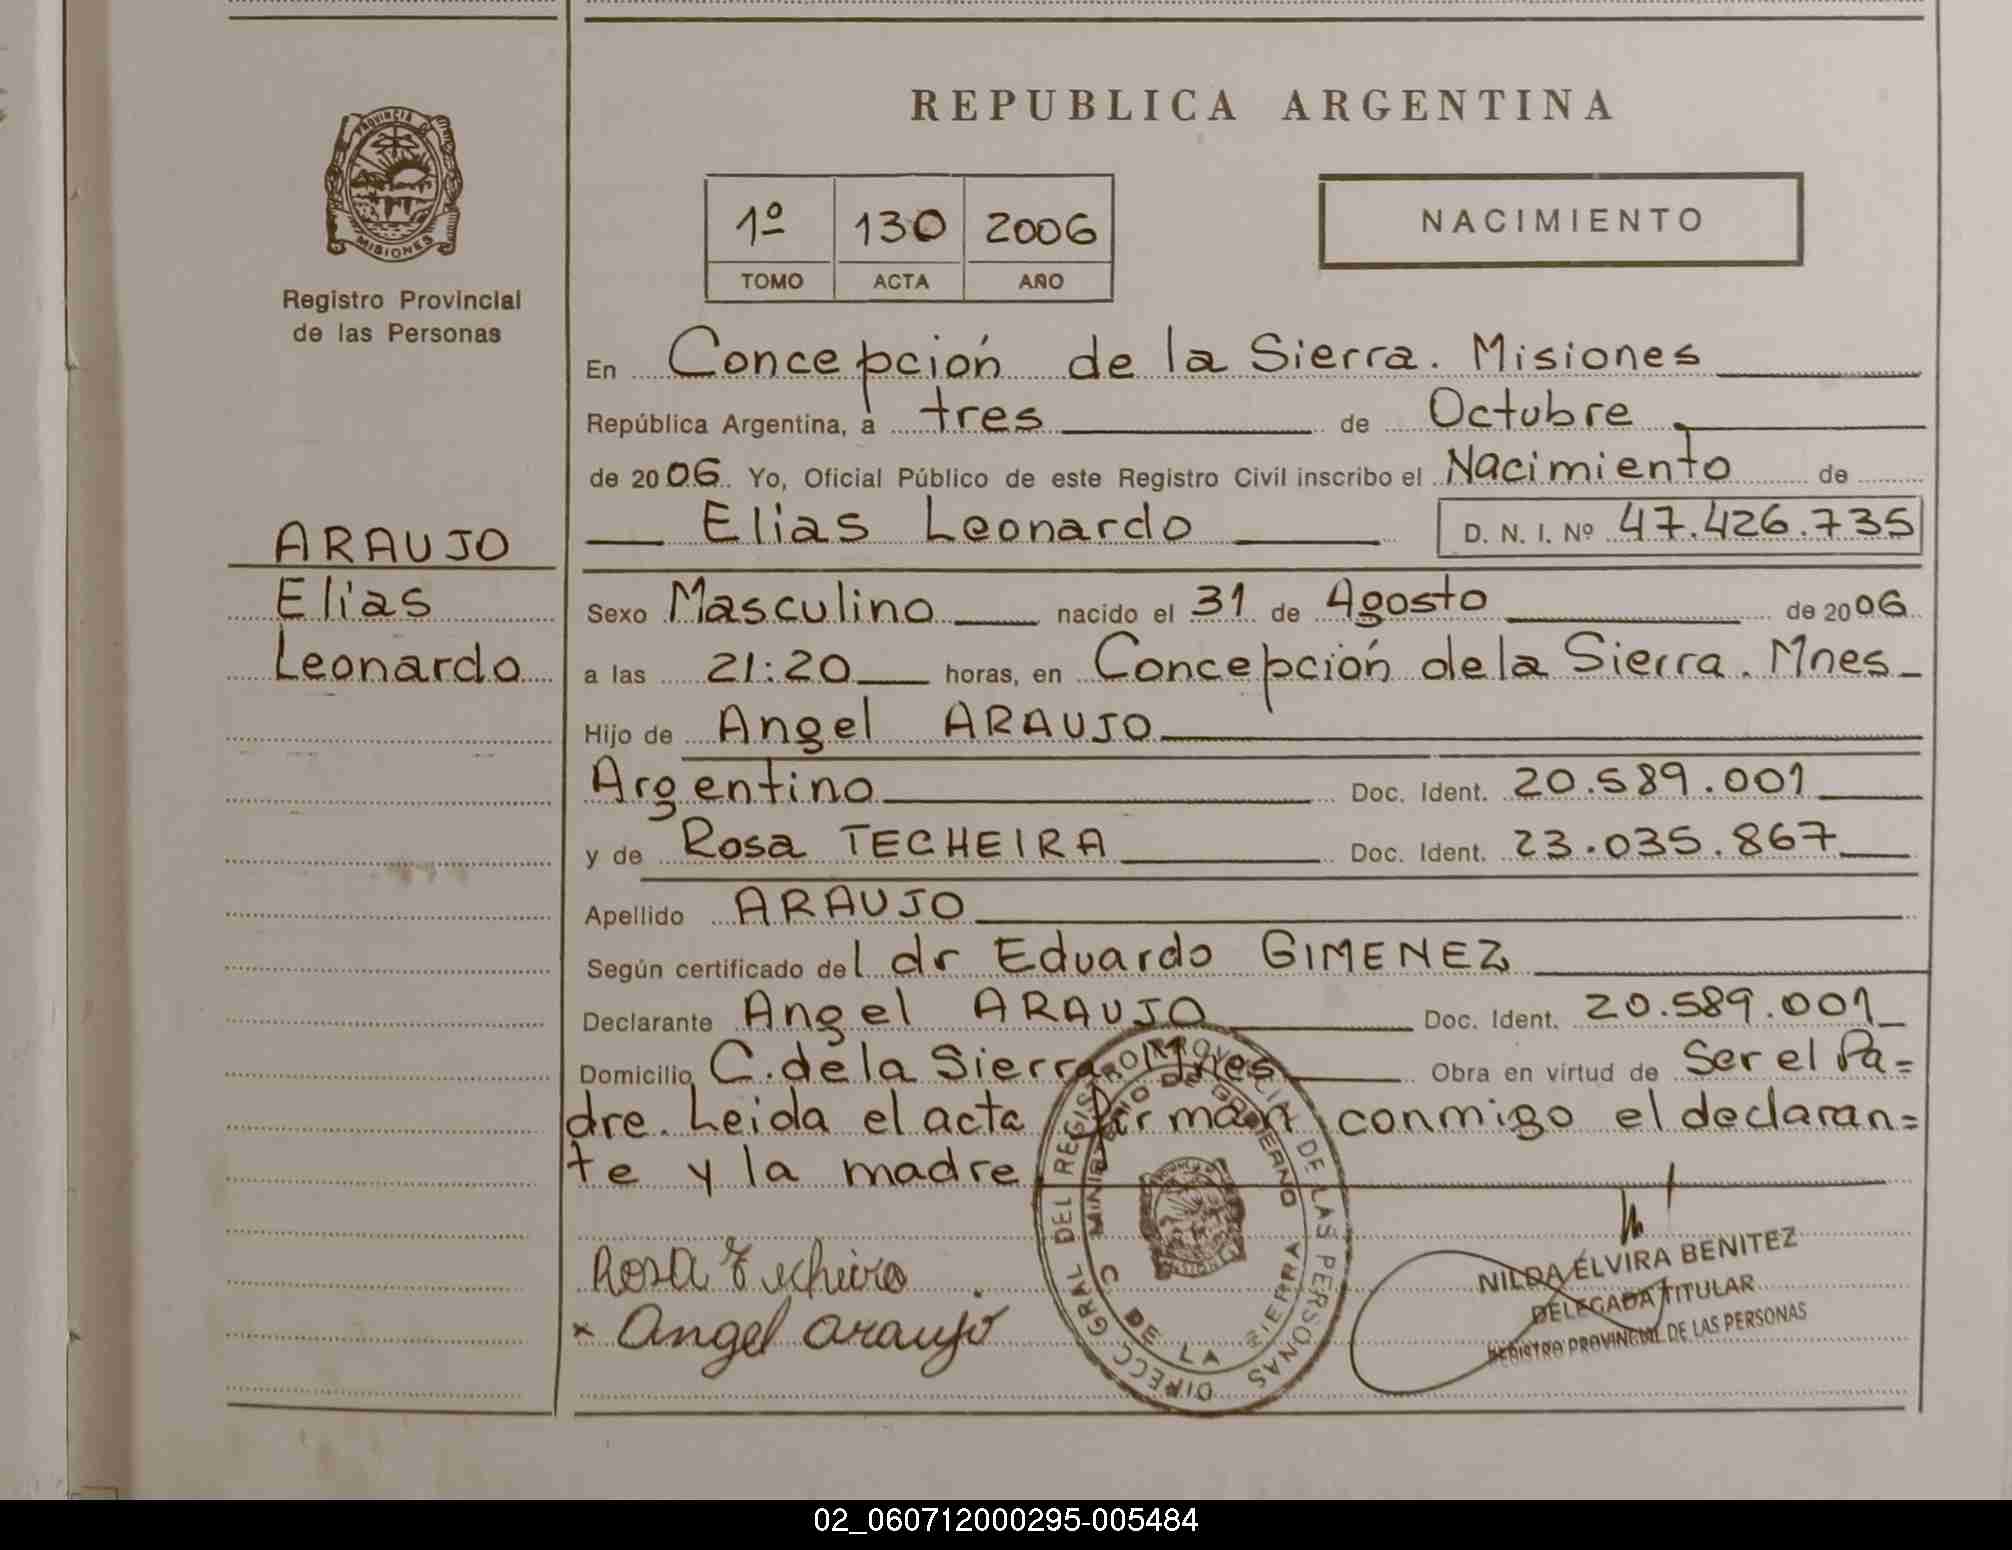 REPUBLICA ARGENTINA
PROVINCIA DE
MISIONES
Registro Provincial
de las Personas
1º 130 2006
TOMO ACTA AÑO
NACIMIENTO
En Concepción de la Sierra. Misiones
República Argentina, a tres de Octubre
de 2006. Yo, Oficial Público de este Registro Civil inscribo el Nacimiento de
Elias Leonardo D. N. I. Nº 47.426.735
ARAUJO
Elias
Leonardo
Sexo Masculino nacido el 31 de Agosto de 2006
a las 21:20 horas, en Concepción de la Sierra. Mnes
Hijo de Angel ARAUJO
Argentino Doc. Ident. 20.589.001
y de Rosa TECHEIRA Doc. Ident. 23.035.867
Apellido ARAUJO
Según certificado del dr Eduardo GIMENEZ
Declarante Angel ARAUJO Doc. Ident. 20.589.001
Domicilio C. de la Sierra Mnes Obra en virtud de Ser el Pa=
dre. Leida el acta firman conmigo el declaran=
te y la madre
Rosa Techeira
x Angel araujo
DIRECC GRAL DEL REGISTRO PROVINCIAL DE LAS PERSONAS
MINISTERIO DE GOBIERNO
C DE LA SIERRA
NILDA ELVIRA BENITEZ
DELEGADA TITULAR
REGISTRO PROVINCIAL DE LAS PERSONAS
02_060712000295-005484